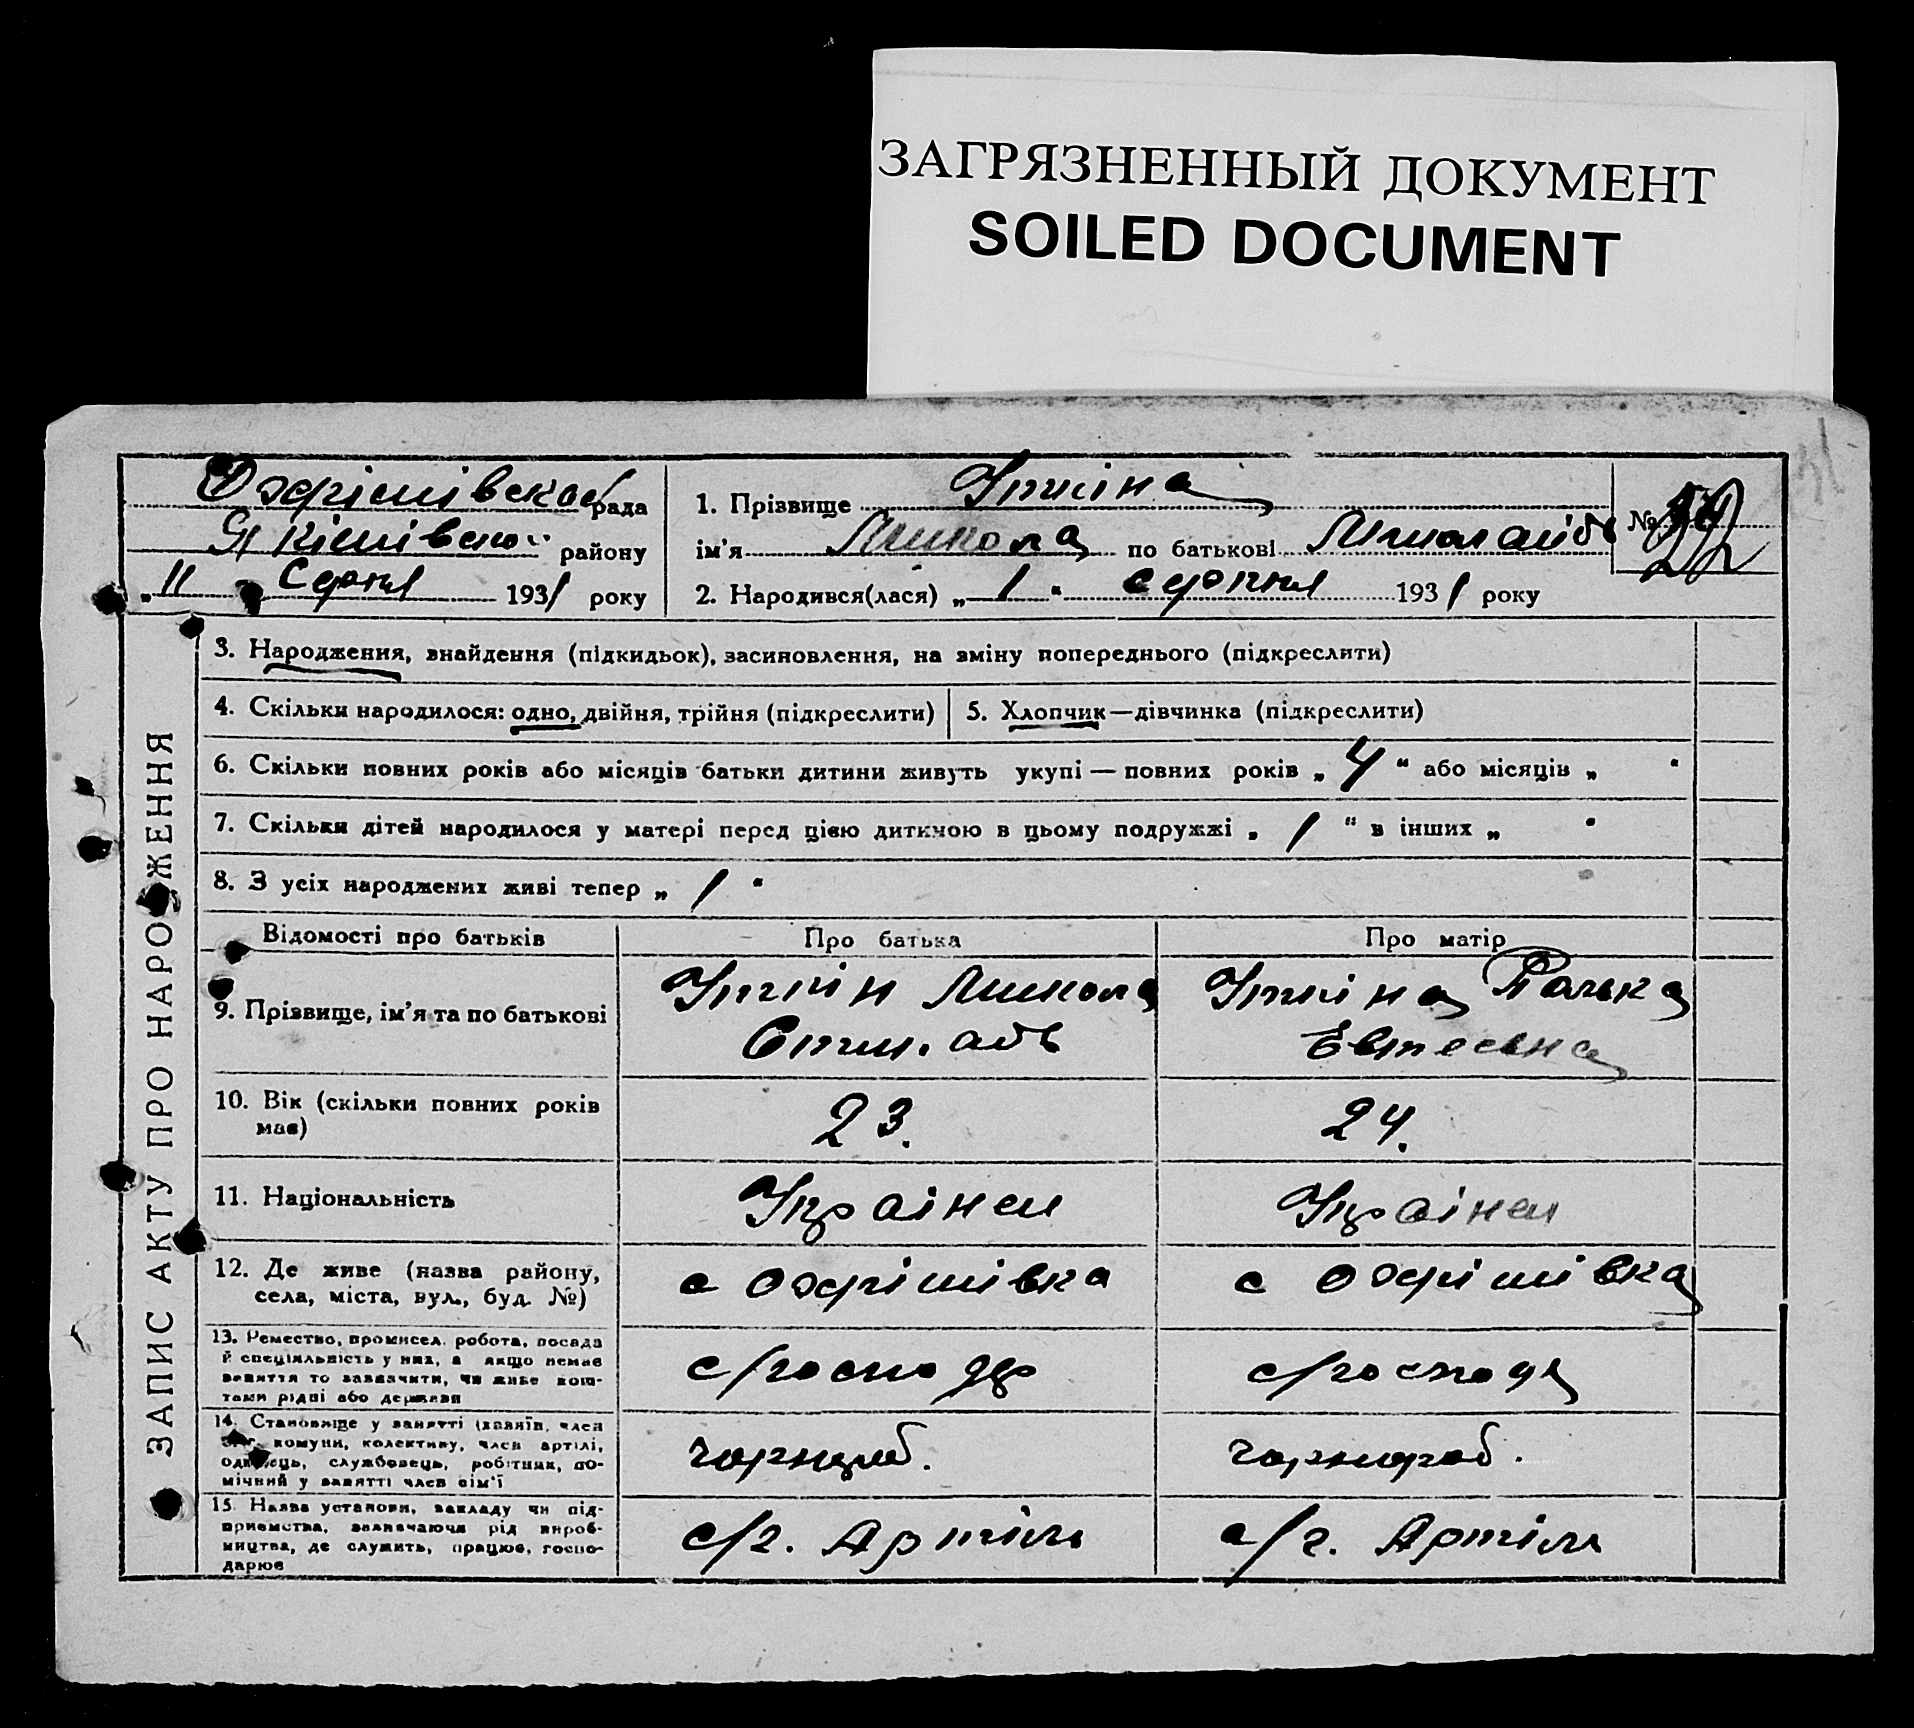 ЗАГРЯЗНЕННЫЙ ДОКУМЕНТ
SOILED DOCUMENT
Охрімівської рада
Якімівськ. району
„11 Серпня 1931 року
1. Прізвище
ім'я Микола по батькові
2. Народився(лася) „1“ серпня 1931 року
№ 22
ЗАПИС АКТУ ПРО НАРОДЖЕННЯ
3. Народження, знайдення (підкидьок), засиновлення, на зміну попереднього (підкреслити)
4. Скільки народилося: одно, двійня, трійня (підкреслити)
5. Хлопчик—дівчинка (підкреслити)
6. Скільки повних років або місяців батьки дитини живуть укупі — повних років „ 4 “ або місяців „ “
7. Скільки дітей народилося у матері перед цією дитиною в цьому подружжі „ 1 “ в інших „ “
8. З усіх народжених живі тепер „ 1 “
Відомості про батьків
Про батька
Про матір
9. Прізвище, ім'я та по батькові
Микола
10. Вік (скільки повних років має)
23.
24.
11. Національність
Українец
Українец
12. Де живе (назва району, села, міста, вул., буд. №)
с Охрімівка
с Охрімівка
13. Ремество, промисел, робота, посада й спеціяльність у них, а якщо немає заняття то зазначити, чи живе коштами рідні або держави
14. Становище у занятті (хазяїн, член комуни, колективу, член артілі, одинець, службовець, робітник, помічний у занятті член сім'ї
чорнороб.
чорнороб.
15. Назва установи, закладу чи підприємства, зазначаючи рід виробництва, де служить, працює, господарює
с/г. Артіль
с/г. Артіль